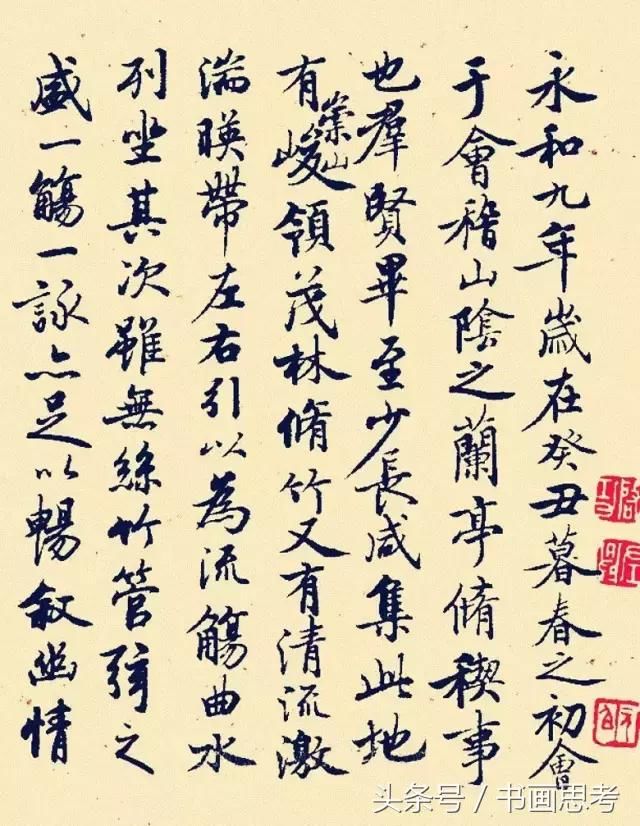 永和九年歲在癸丑暮春之初會
于會稽山陰之蘭亭脩稧事
也羣賢畢至少長咸集此地
有崇山峻領茂林脩竹又有清流激
湍暎帶左右引以為流觴曲水
列坐其次雖無絲竹管弦之
盛一觴一詠亦足以暢敘幽情
头条号 / 书画思考